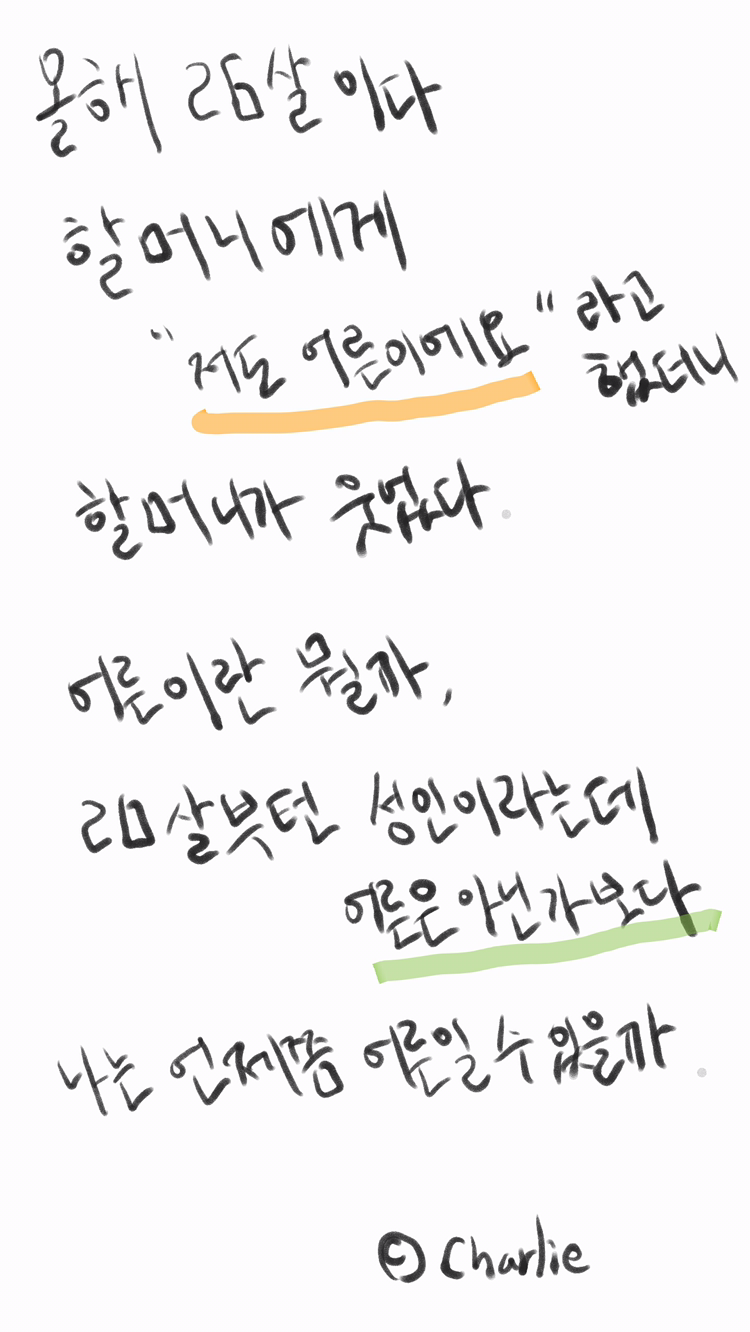 올해 26살이다
할머니에게
"저도 어른이에요" 라고
했더니
할머니가 웃었다.
어른이란 뭘까,
20살부턴 성인이라는데
어른은 아닌가보다
나는 언제쯤 어른일 수 있을까.
© Charlie